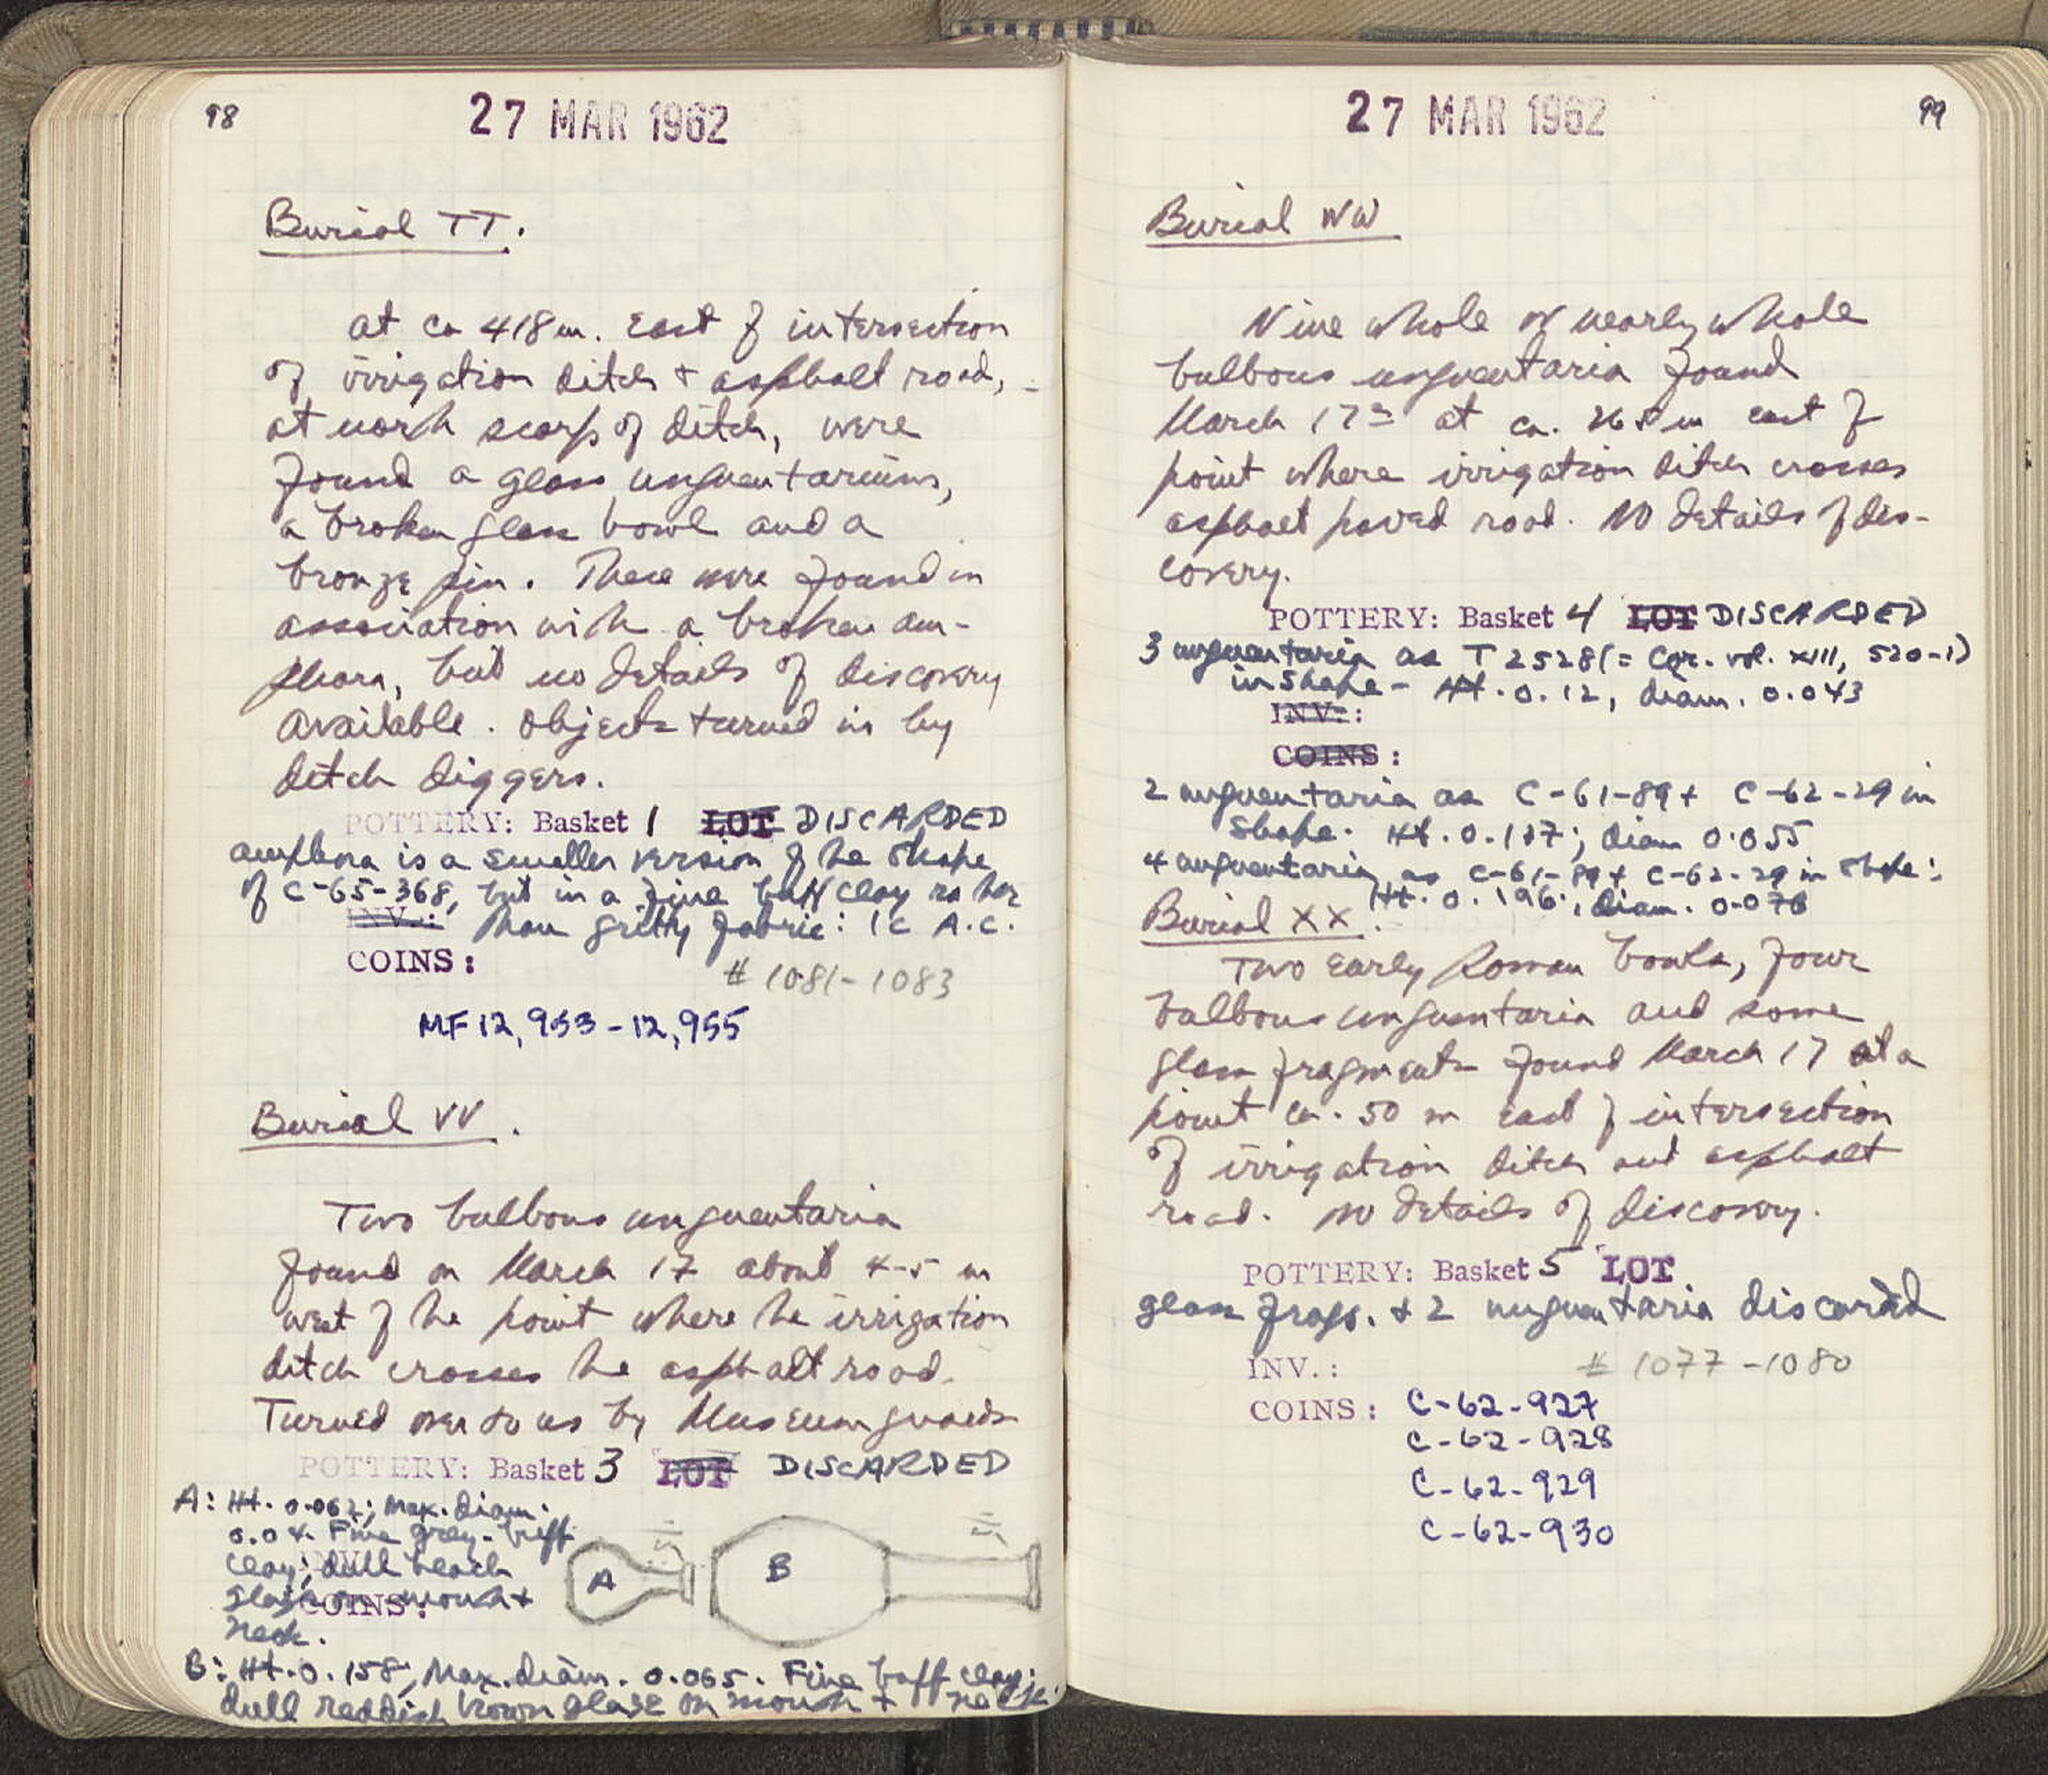 98
27 MAR 1962
Burial TT.
at ca 418 m. East of intersection
of irrigation ditch + asphalt road,
at north scarp of ditch, were
found a glass unguentarium,
a broken glass bowl and a
bronze pin. These were found in
association with a broken am-
phora, but no details of discovery
available. Objects turned in by
ditch diggers.
POTTERY: Basket 1 LOT DISCARDED
amphora is a smaller version of the shape
of C-65-368, but in a fine buff clay rather
INV.: than gritty fabric: 1c A.C.
COINS:
# 1081-1083
MF 12,953-12,955
Burial VV.
Two bulbous unguentaria
found on March 17 about 4-5 m
west of the point where the irrigation
ditch crosses the asphalt road.
Turned over to us by Museum guards
POTTERY: Basket 3 LOT DISCARDED
A: Ht. 0.062; Max. diam.
0.04. Fine grey-buff
clay; dull black
glaze on mouth +
COINS:
neck.
A
B
B: Ht. 0.158; Max. diam. 0.065. Fine buff clay;
dull reddish brown glaze on mouth + neck.
27 MAR 1962
99
Burial WW
Nine whole or nearly whole
bulbous unguentaria found
March 17 at ca. m east of
point where irrigation ditch crosses
asphalt paved road. No details of dis-
covery.
POTTERY: Basket 4 LOT DISCARDED
3 unguentaria as T 2528 (= Cor. vol. XIII, 520-1)
in shape - Ht. 0.12, diam. 0.043
INV.:
COINS:
2 unguentaria as C-61-89 + C-62-29 in
shape. Ht. 0.127; diam 0.055
4 unguentaria as C-61-89 + C-62-29 in shape:
Ht. 0.196; diam. 0.076
Burial XX.
Two Early Roman bowls, four
bulbous unguentaria and some
glass fragments found March 17 at a
point ca. 50 m East of intersection
of irrigation ditch and asphalt
road. No details of discovery.
POTTERY: Basket 5 LOT
glass frags. + 2 unguentaria discarded
INV.: # 1077-1080
COINS: C-62-927
C-62-928
C-62-929
C-62-930